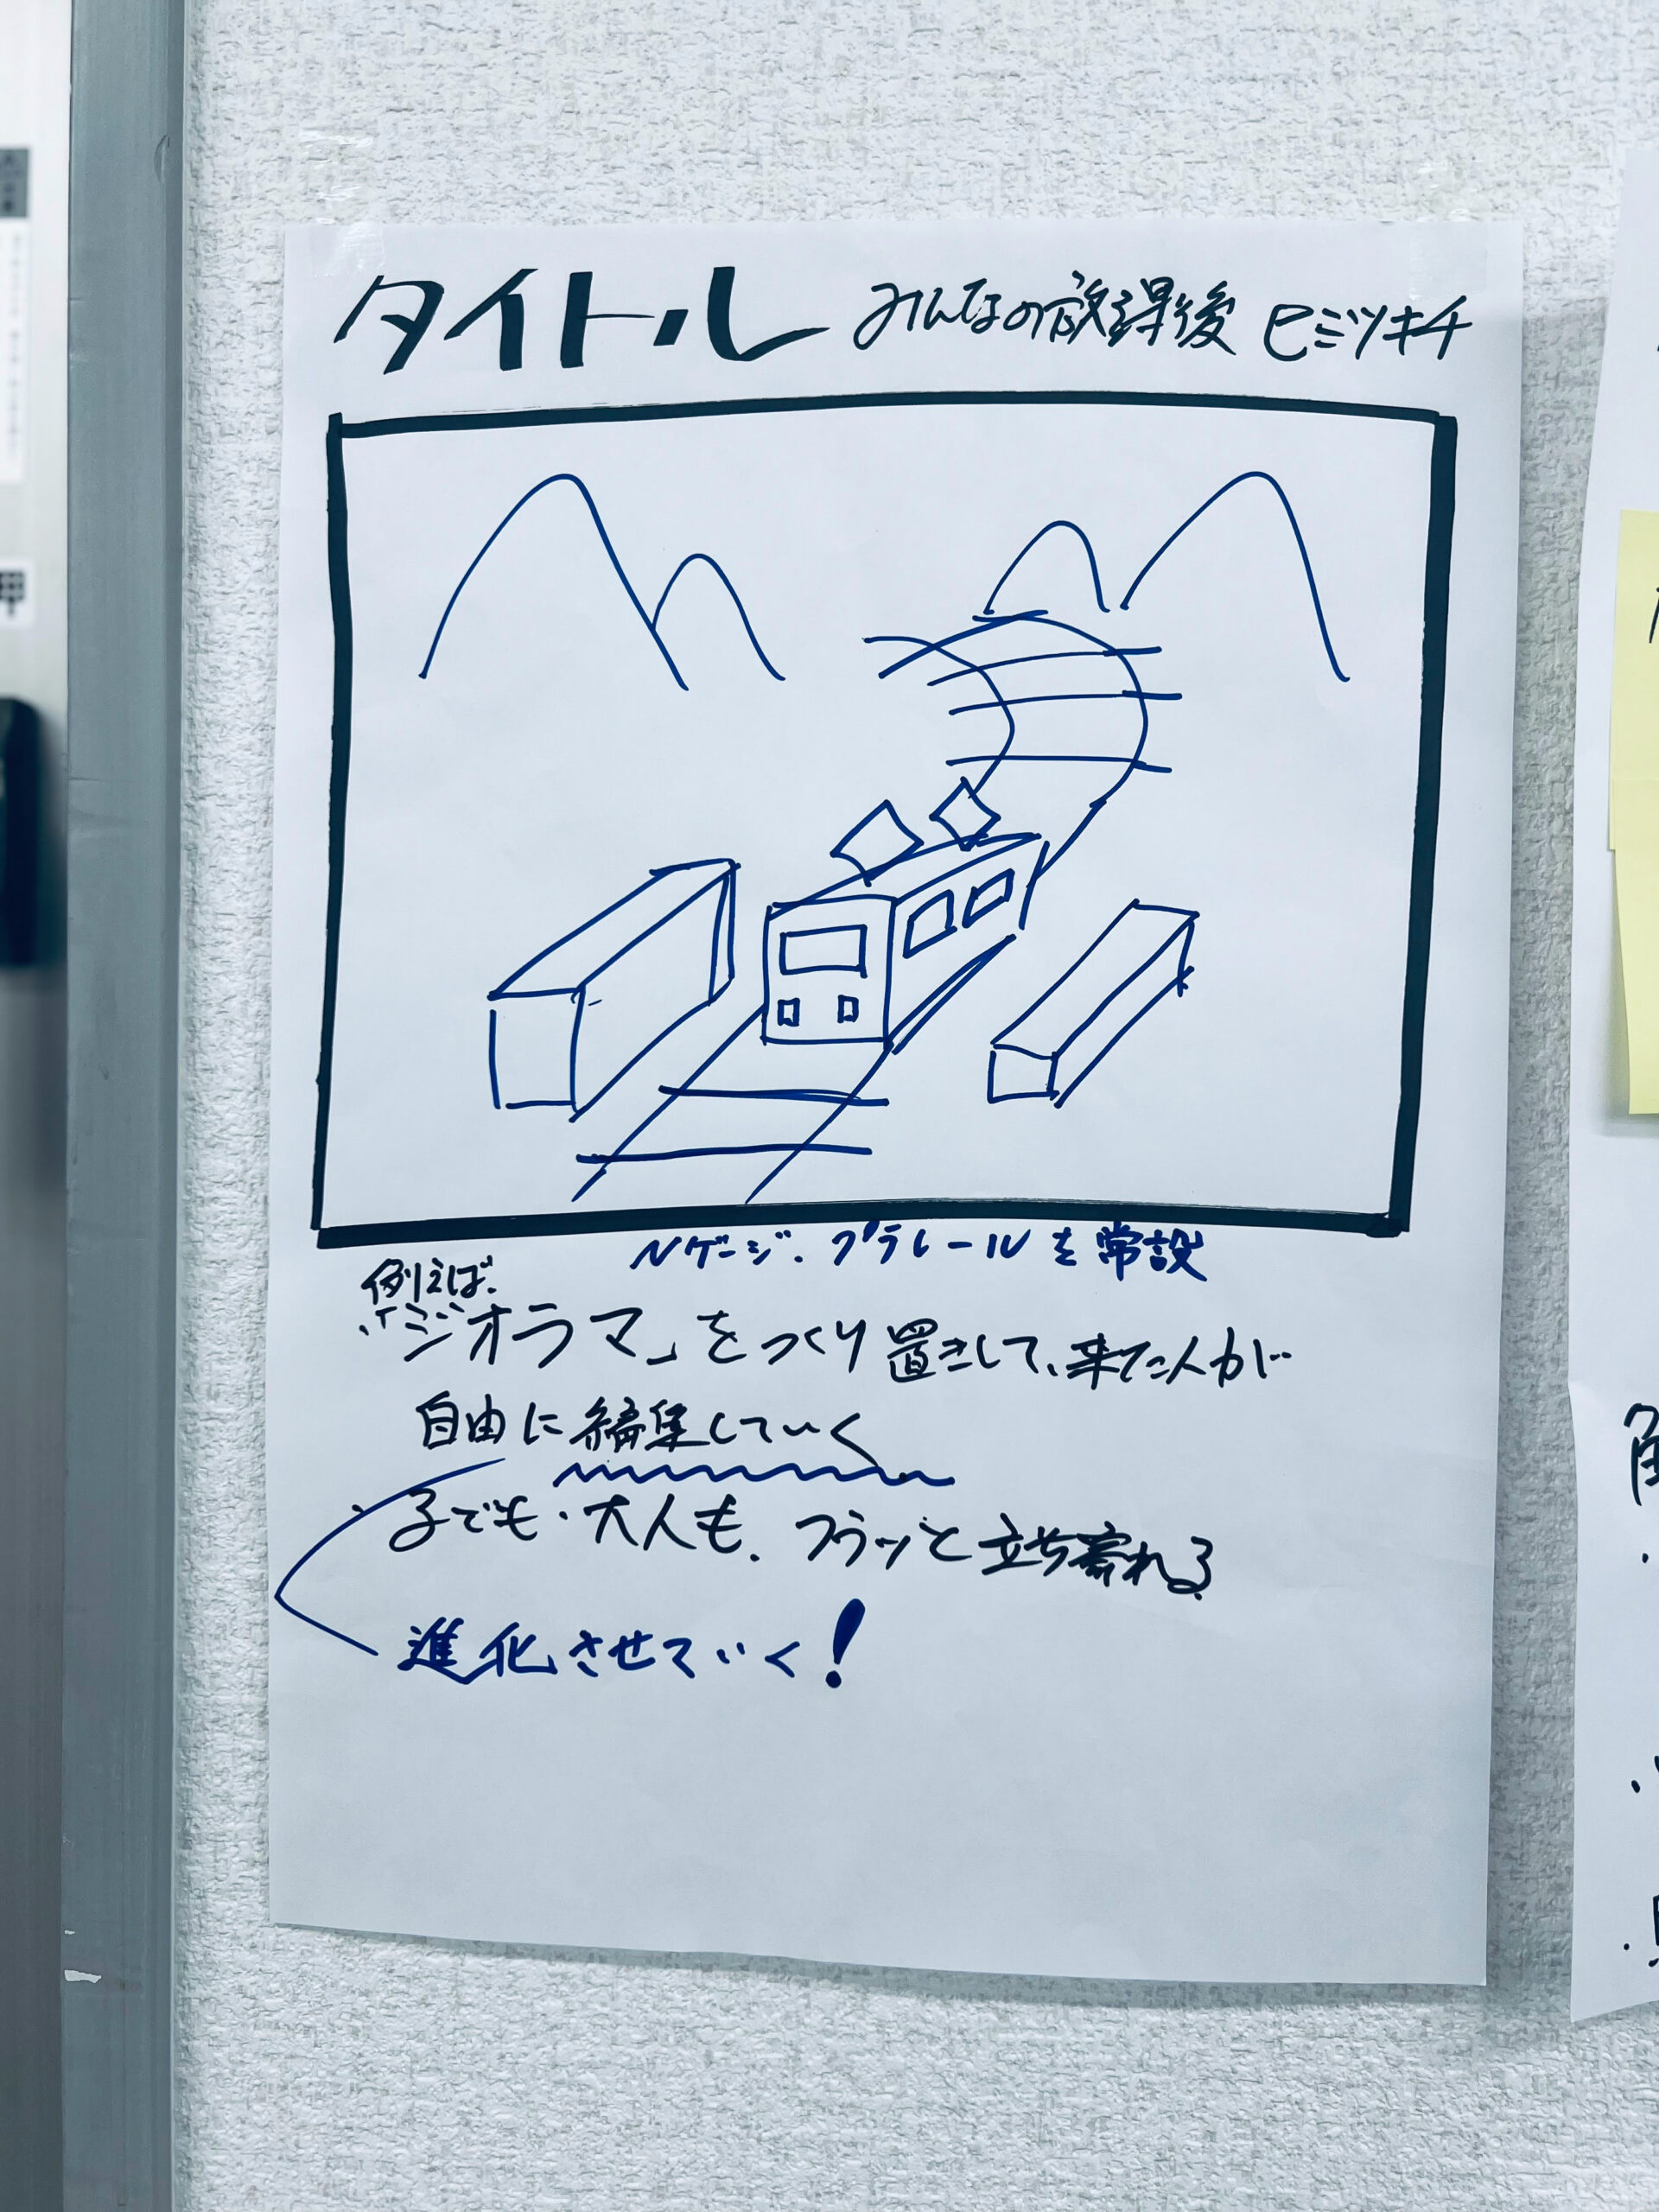 タイトル みんなの放課後 ヒミツキチ
Nゲージ、プラレールを常設
例えば、
「ジオラマ」をつくり置きして、来た人が
自由に編集していく
子でも・大人も、フラッと立ち寄れる
進化させていく!